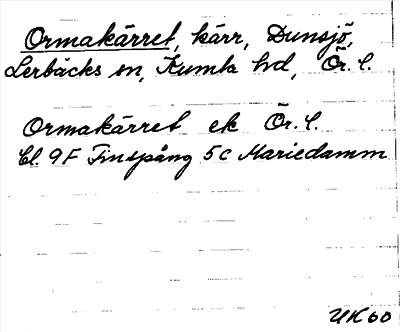 Ormakärret, kärr, Dunsjö,
Lerbäcks sn, Kumla hd, Ör. l.
Ormakärret ek Ör. l.
Bl. 9F Finspång 5c Mariedamm
UK60